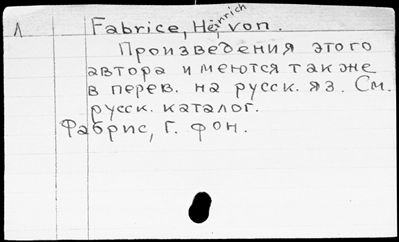 Λ Fabrice, Heinrich von.
Произведения этого
автора имеются также
в перев. на русск. яз. См.
русск. каталог.
Фабрис, Г. фон.